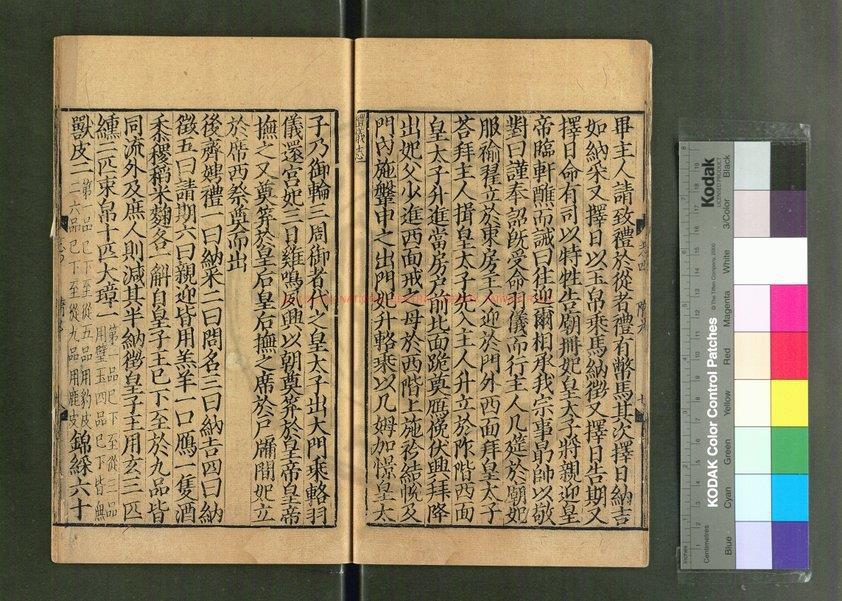 畢主人請致禮於從者禮有幣馬其次擇日納吉
如納采又擇日以玉帛乘馬納徵又擇日告期又
擇日命有司以特牲告廟冊妃皇太子將親迎皇
帝臨軒醮而誡曰往迎爾相承我宗事勗帥以敬
對曰謹奉詔既受命羽儀而行主人几筵於廟妃
服褕翟立於東房主人迎於門外西面拜皇太子
荅拜主人揖皇太子先入主人升立於阼階西面
皇太子升進當房戶前北面跪奠鴈俛伏興拜降
出妃父少進西面戒之母於西階上施衿結帨及
門內施鞶申之出門妃升輅乘以几姆加幜皇太
禮儀志
子乃御輪三周御者代之皇太子出大門乘輅羽
儀還宮妃三日雞鳴夙興以朝奠笲於皇帝皇帝
撫之又奠笲於皇后皇后撫之席於戶牖間妃立
於席西祭奠而出
後齊娉禮一曰納采二曰問名三曰納吉四曰納
徵五曰請期六曰親迎皆用羔羊一口鴈一隻酒
黍稷稻米麵各一斛自皇子王已下至於九品皆
同流外及庶人則減其半納徵皇子王用玄三匹
纁二匹束帛十匹大璋一第一品已下至從三品用璧玉四品已下皆無
獸皮二第一品已下至從五品用豹皮二六品已下至從九品用鹿皮錦綵六十
Kodak
LICENSED PRODUCT
KODAK Color Control Patches
© The Tiffen Company, 2000
Blue
Cyan
Green
Yellow
Red
Magenta
White
3/Color
Black
Inches
Centimetres